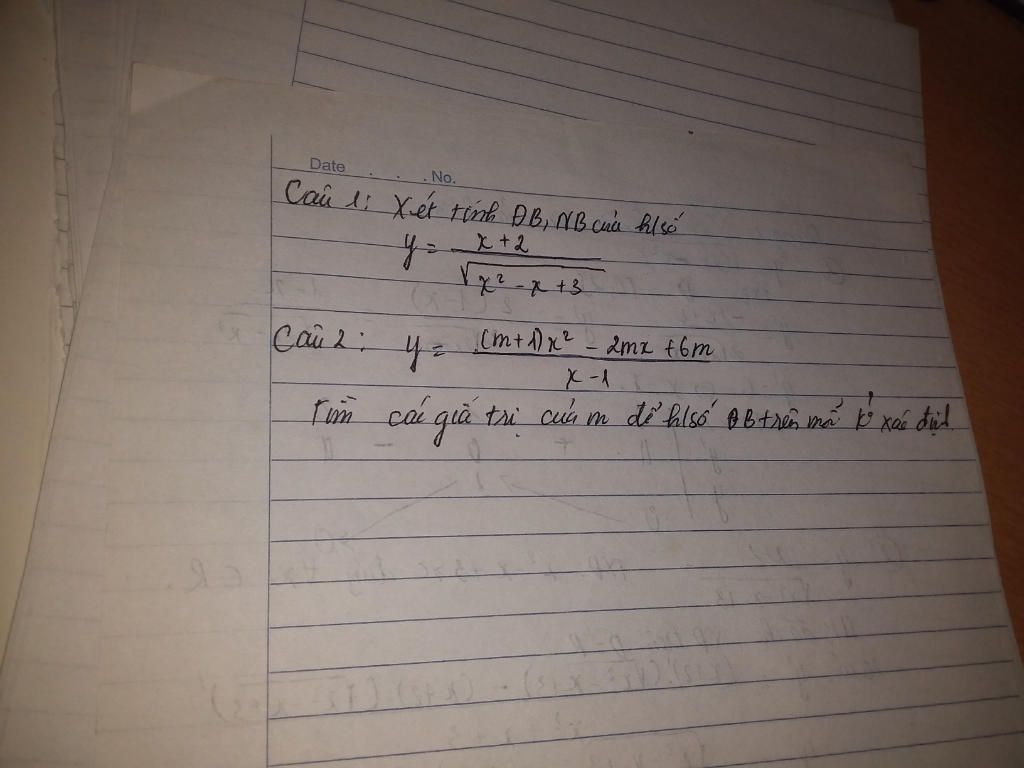 Date . . . No.
Câu 1: Xét tính ĐB, NB của h/số
y = \frac{x+2}{\sqrt{x^2-x+3}}
Câu 2: y = \frac{(m+1)x^2 - 2mx + 6m}{x-1}
Tìm các giá trị của m để h/số ĐB trên mỗi k² xác định.